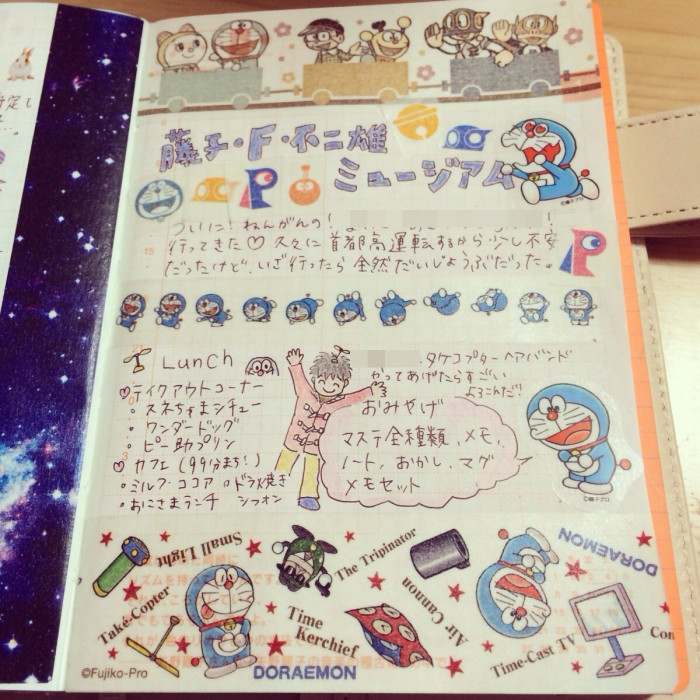 藤子・F・不二雄
ミュージアム
ついに！ねんがんの！
行ってきた♡ 久々に首都高運転するから少し不安
だったけど、いざ行ったら全然だいじょうぶだった。
15
Lunch
♡テイクアウトコーナー
・スネちゃまシチュー
・ワンダードッグ
・ピー助プリン
♡カフェ(99分まち！)
・ミルクココア ・ドラ焼き
・おこさまランチ シフォン
タケコプターヘアバンド
かってあげたらすごい
よろこんだ！
おみやげ
マステ全種類、メモ、
ノート、おかし、マグ
メモセット
©藤子プロ
Small Light
The Tripinator
Air Cannon
DORAEMON
Take-Copter
Time
Kerchief
Time-Cast TV
Con
©Fujiko-Pro
DORAEMON